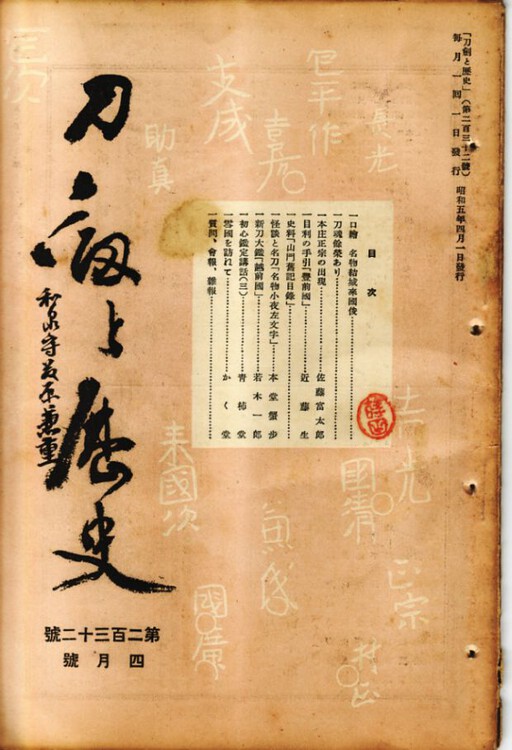 「刀劍と歷史」(第二百三十二號) 昭和五年四月一日發行
每月一回一日發行
目次
一口繪 名物結城來國俊
一刀魂餘榮あり
一本庄正宗の出現 佐藤富太郎
一目利の手引「豐前國」 近藤生
一史料「山門舊記目錄」
一怪談と名刀「名物小夜左文字」 本堂蟹步
一新刀大鑑「越前國」 若木一郎
一初心鑑定講話(三) 青柿堂
一雪國を訪れて かく堂
一質問、會報、雜報
刀劔と歷史
和泉守藤原兼重
第二百三十二號
四月號
包平作
支成
助真
吉光
國清
正宗
村正
來國次
國廣